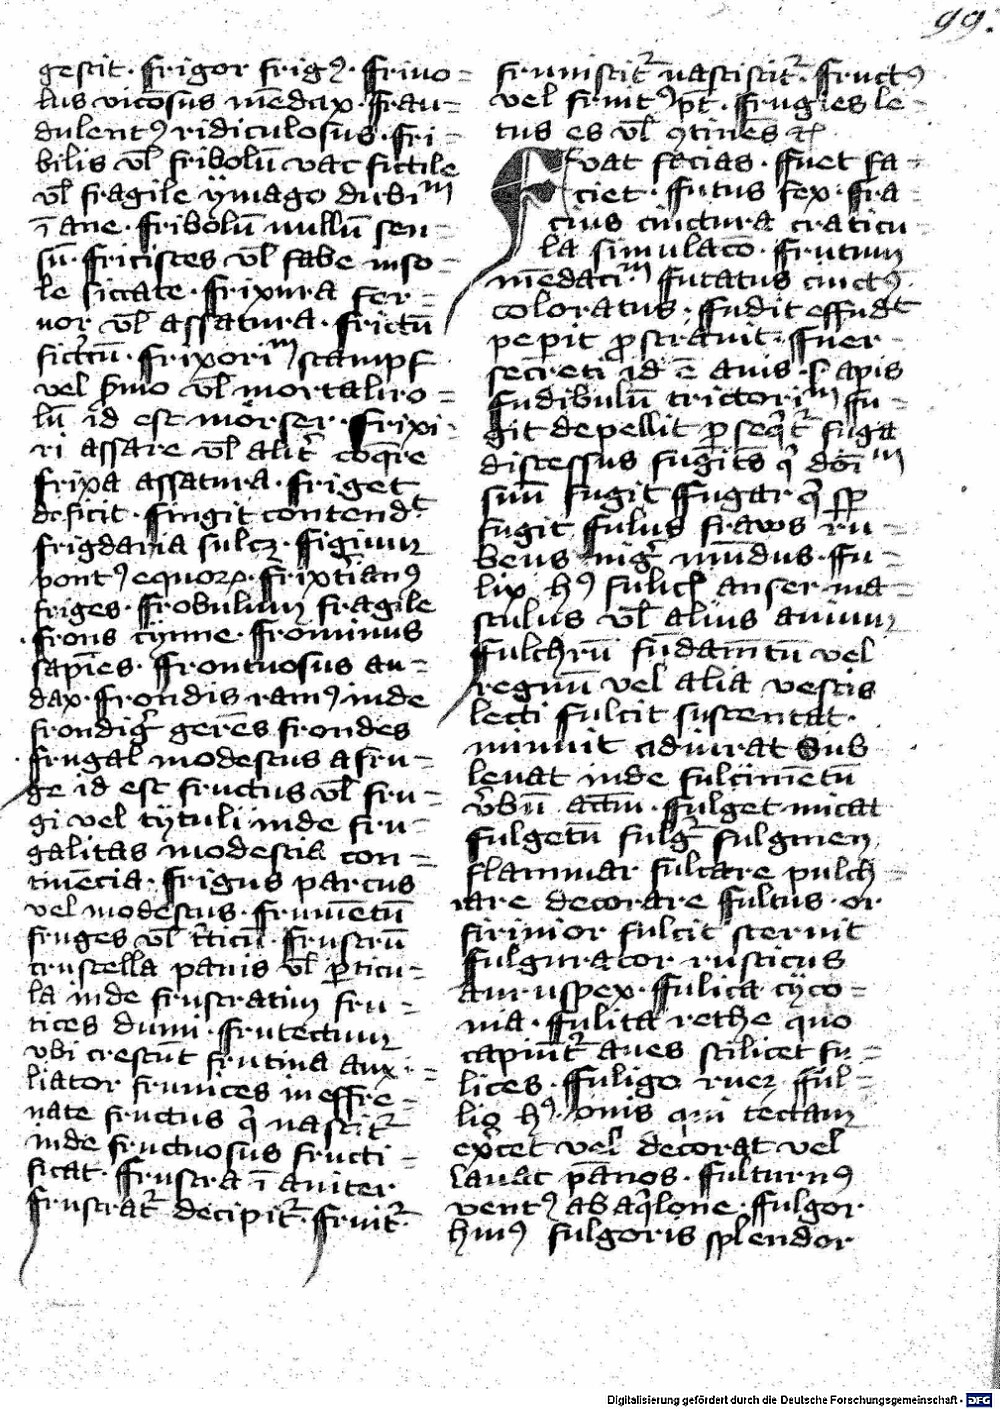 99.
gescit · ffrigor frigꝰ · ffriuo=
lus vicōsus mēdax · ffrau=
dulentꝰ ridiculosus · ffri=
bilis vl̄ fribolū vac fictile
vl̄ fragile ymago dubiᵐ
īane · ffribolū nullū sen=
sū · ffricistes vl̄ fabe inso=
le siccate · ffrixura fer=
uor vl̄ assatura · ffrictū
sictū · ffrixoriᵐ stampf
vel vl̄ mortariro=
lū id est mörser · ffrixi=
ri assare vl̄ alit̄ coq̄re
frixa assatura · ffriget
deficit · ffingit contendᵗ
frigdaria sulcz · ffigium
pontꝰ equoꝝ · ffrixt̄ianꝰ
friges · ffrobulium fragile
ffrons tynne · ffrominus
sapīes · ffrontuosus au=
dax · ffrondis ramꝰ inde
frondiḡ gerēs frondes
ffrugal modestus a fru=
ge id est fructus vl̄ fru=
gi vel tytuli inde fru=
galitas modestia con=
tinēcia · ffrigus parcus
vel modestus · ffrumētū
fruges vl̄ t̄ticū · ffrustrū
crustella panis vl̄ ꝑticu=
la inde frustratim fru=
tices dumi · ffrutectum
vbi crescūt frutina aux=
liator frunices in effre=
nate fructus q̄ nascit̄
inde fructuosus fructi=
ficat · ffrustra īaniter
ffrustrat̄ decipit̄ · ffruit̄
fruniscit̄ nasciscit̄ · ffructꝰ
vel fruitꝰ pt̄ · ffrugies le=
tus es vl̄ ꝯtinēs
Fuat facias · ffuet fa=
ciet · ffutus fex · ffra=
cius cinctura craticu
la simulacō · ffrutum
mēdaciᵐ ffucatus cinctꝰ
coloratus · ffudit effudᵗ
peperit ꝓstrauit · ffuer
secreti id ē auis · lapis
ffudibulū trictoriᵐ ffu=
git depellit ꝑseq̄t̄ fuga
discessus fugiēs q̄ domᵐ
suū fugit ffugar q̄ sp̄
fugit ffulus fraws ru=
beus niḡ mūdus · ffu=
lix hꝰ fulicꝭ anser ma=
sculus vl̄ alius auium
ffulchrū fūdamētū vel
regnū vel alia vestis
lecti ffulcit sustentat ·
minuit adiuuat sub
leuat inde fulcimētū
v̄bū actm̄ · ffulget micat
ffulgetū fulḡ fulgmen
flammar fulcare pulch=
rare decorare ffultus · or
firmior fulcit sternit
ffulgurator rusticus
auruspex · ffulica cyco=
nia · ffulita rethe quo
capiūt̄ aues scilicet fu=
lices · ffuligo ruez fful=
lio hꝰ onis qui tectam
exercet vel decorat vel
lauat pānos · ffulturnꝰ
ventꝰ ab aq̄lone · ffulgor
huiꝰ fulgoris splendor
Digitalisierung gefördert durch die Deutsche Forschungsgemeinschaft - DFG